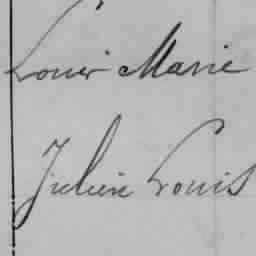 Louis Marie
Julien Louis